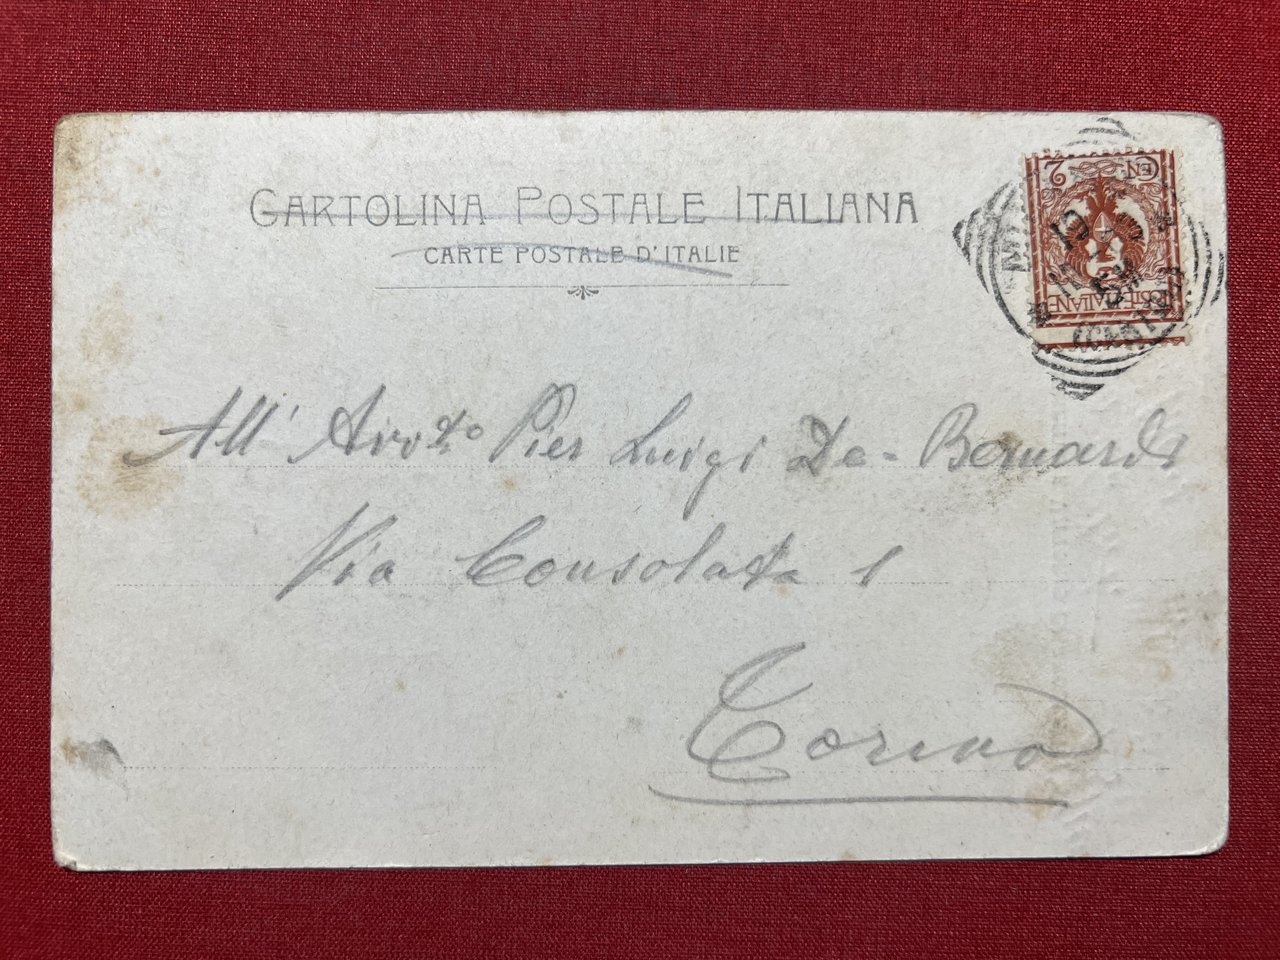 CARTOLINA POSTALE ITALIANA
CARTE POSTALE D'ITALIE
CEN. 2
POSTE ITALIANE
All' Avv.to Pier Luigi De-Bernardi
Via Consolata 1
Torino